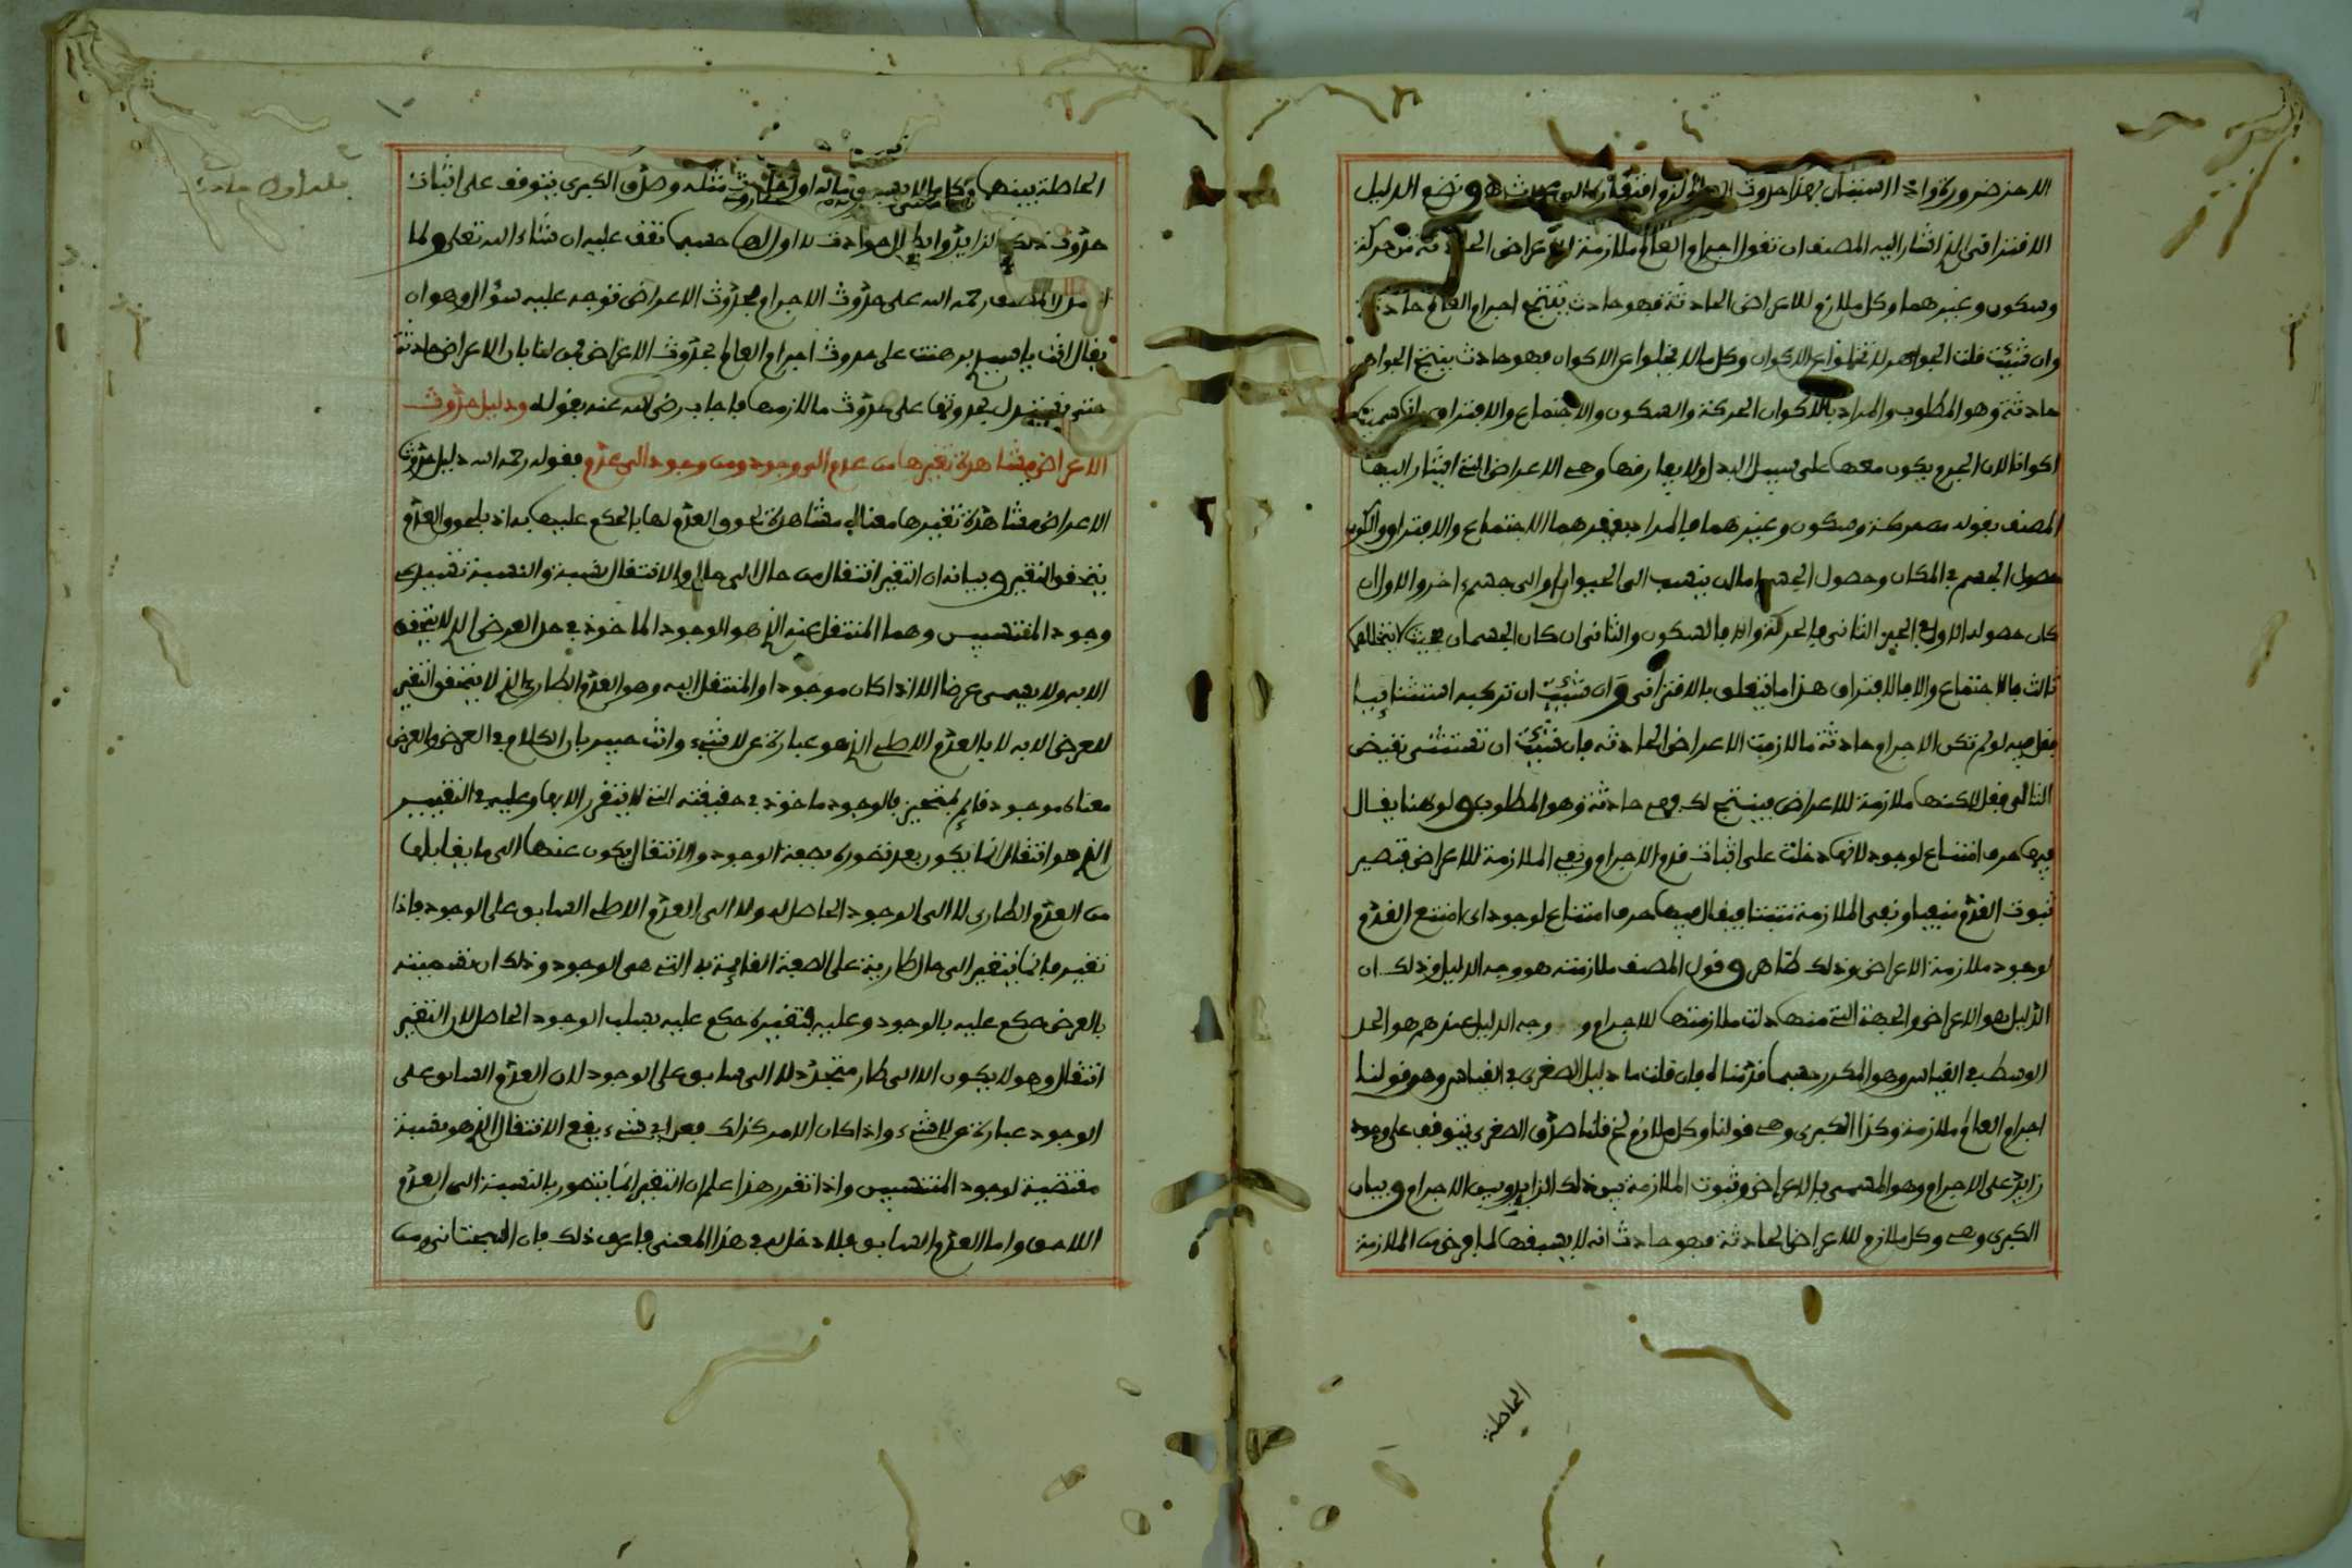 وسكون وغيرهما وكل ملازم للاعراض الحادثة فهو حادث ينتج اجرام العالم حادثة
وان شئت قلت الجواهر لا تخلوا عن الاكوان وكل ما لا يخلوا عن الاكوان فهو حادث ينتج الجواهر
حادثة وهو المطلوب والمراد بالاكوان الحركة والسكون والاجتماع والافتراق
اكوانا لان الجرم يكون معها على سبيل البدل ولا يفارقها وهى الاعراض التى اشار اليها
المصنف بقوله من حركة وسكون وغيرهما فالمراد بغيرهما الاجتماع والافتراق والكون
حصول الجسم فى المكان وحصول الجسم اما ان ينسب الى الحيز او الى جسم اخر والاول ان
كان حصوله الاول فى الحيز الثانى فالحركة والا فالسكون والثانى ان كان الجسمان بحيث لا يتخللهما
ثالث فالاجتماع والا فالافتراق هذا ما يتعلق بالاقترانى وان شئت ان تركبه استثنائيا
فقل فيه لو لم تكن الاجرام حادثة ما لازمت الاعراض الحادثة فان شئت ان تستثنى نقيض
التالى فقل لاكنها ملازمة للاعراض فينتج لك فهى حادثة وهو المطلوب ولو هنا يقال
فيها حرف امتناع لوجود لانها دخلت على اثبات قدم الاجرام ونفى الملازمة للاعراض فتصير
ثبوت القدم منفيا ونفى الملازمة مثبتا فيقال فيها حرف امتناع لوجود اى امتنع القدم
لوجود ملازمة الاعراض وذلك ظاهر وقول المصنف ملازمته هو وجه الدليل وذلك ان
الدليل هو الاعراض والجهة التى منها دلت ملازمتها للاجرام و وجه الدليل عندهم هو الحد
الوسط فى القياس وهو المكرر حسبما قدمناه فان قلت ما دليل الصغرى فى القياس وهو قولنا
اجرام العالم ملازمة وكذا الكبرى وهى قولنا وكل ملازم الخ قلنا صدق الصغرى يتوقف على وجود
زايد على الاجرام وهو المسمى بالاعراض وثبوت الملازمة بين ذلك الزايد وبين الاجرام وبيان
الكبرى وهى وكل ملازم للاعراض الحادثة فهو حادث انه لا يسبقها لما فرض من الملازمة
الحاصلة
الحاصلة بينها وكل ما لا يسبق مثله وصدق الكبرى يتوقف على اثبات
حدوث ذلك الزايد وابطال حوادث لا اول لها حسبما تقف عليه ان شاء الله تعلى ولما
المصنف رحمه الله على حدوث الاجرام بحدوث الاعراض توجه عليه سؤال وهو ان
يقال انت يا برهنت على حدوث اجرام العالم بحدوث الاعراض فمن لنا بان الاعراض حادثة
حتى نستدل بحدوثها على حدوث ما لازمها فاجاب رضى الله عنه بقوله ودليل حدوث
الاعراض مشاهدة تغيرها من عدم الى وجود ومن وجود الى عدم فقوله رحمه الله دليل حدوث
الاعراض مشاهدة تغيرها معناه مشاهدة لحوق العدم لها بالحكم عليها به اذ بلحوق العدم
يتحقق التغير وبيانه ان التغير انتقال من حال الى حال والانتقال نسبة والنسبة تقتضى
وجود المنتسبين وهما المنتقل عنه الذى هو الوجود الماخوذ فى حد العرض الذى لا يتحقق
الا به ولا يسمى عرضا الا اذا كان موجودا والمنتقل اليه وهو العدم الطارئ الذى لا يتحقق التغير
للعرض الا به لا بالعدم الاصلى الذى هو عبارة عن لا شىء وانت خبير بان الكلام فى العرض والعرض
معناه موجود قايم بمتحيز فالوجود ماخوذ فى حقيقته التى لا يتقرر الا بها وعليه فالتغيير
الذى هو انتقال انما يكون بعد تصوره بصفة الوجود والانتقال يكون عنها الى ما يقابلها
من العدم الطارى لا الى الوجود الحاصل له ولا الى العدم الاصلى السابق على الوجود فاذا
تغير فانما يتغير الى حال طارية على الصفة القايمة به التى هى الوجود وذلك ان تسميته
بالعرض حكم عليه بالوجود وعليه فتغيره حكم عليه بسلب الوجود الحاصل لان التغير
انتقال وهو لا يكون الا الى طار متجدد لا الى سابق على الوجود لان العدم السابق على
الوجود عبارة عن لا شىء واذا كان الامر كذلك فعن اى شىء يقع الانتقال الذى هو نسبة
مقتضية لوجود المنتسبين واذا تقرر هذا علم ان التغير انما يتصور بالنسبة الى العدم
اللاحق واما العدم السابق فلا دخل له فى هذا المعنى فاعرف ذلك فان